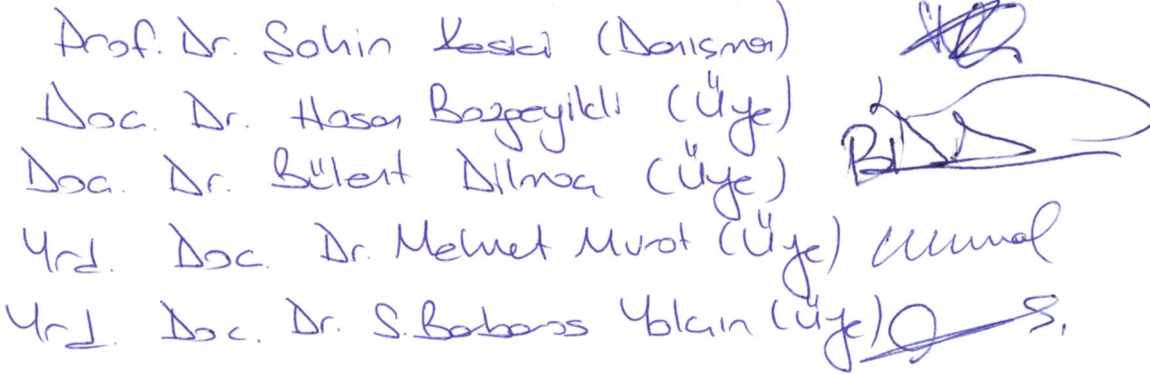 Prof. Dr. Şahin Kesici (Danışman)
Doç. Dr. Hasan Bozgeyikli (Üye)
Doç. Dr. Bülent Dilmaç (Üye)
Yrd. Doç. Dr. Mehmet Murat (Üye)
Yrd. Doç. Dr. S. Barbaros Yalçın (Üye)